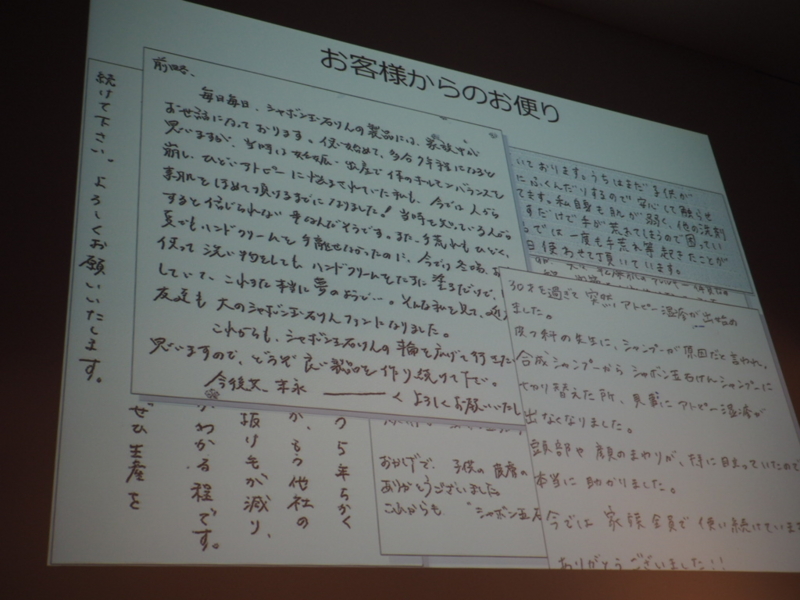 お客様からのお便り
前略、
毎日毎日、シャボン玉石けんの製品には、家族中が
お世話になっております。使い始めて、多分7年程になると
思いますが、当時は妊娠・出産で体のホルモンバランスを
崩し、ひどいアトピーに悩まされていた私も、今では人から
素肌をほめて頂けるまでになりました!当時を知っている人から
すると信じられない事なんだそうです。また、手荒れもひどく、
夏でもハンドクリームを手離せなかったのに、今では冬場、お
使って洗い物をしても、ハンドクリームをたまに塗るだけで、
していて、これまた本当に夢のよう
そんな私を見て、
友達も大のシャボン玉石けんファンになりました。
これからも、シャボン玉石けんの輪を広げて行きた
思いますので、どうぞ良い製品を作り続けて下さい。
今後共、末永
くよろしくお願いいたし
いております。うちはまだ子供が
にふくんだりするので安心して触らせ
てます。私自身も肌が弱く、他の洗剤
すだけで手が荒れてしまうので困ってい
では一度も手荒れ等起きたことが
日使わせて頂いています。
30才を過ぎて突然アトピー湿疹が出始め
ました。
皮フ科の先生に、シャンプーが原因だと言われ、
合成シャンプーからシャボン玉石けんシャンプーに
切り替えた所、見事にアトピー湿疹が
出なくなりました。
頭部や顔のまわりが、特に目立っていたので
本当に助かりました。
今では家族全員で使い続けています
ありがとうございました!!
おかげで、子供の皮膚の
ありがとうございました
これからも"シャボン玉石
続けて下さい。よろしくお願いいたします。
う5年ちかく
か、もう他社の
抜け毛が減り、
わかる程です。
ぜひ生産を